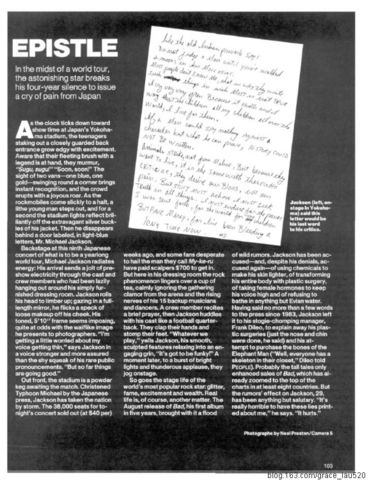 EPISTLE
In the midst of a world tour,
the astonishing star breaks
his four-year silence to issue
a cry of pain from Japan
As the clock ticks down toward
show time at Japan's Yokoha-
ma stadium, the teenagers
staking out a closely guarded back
entrance grow edgy with excitement.
Aware that their fleeting brush with a
legend is at hand, they murmur,
"Sugu, sugu!" "Soon, soon!" The
sight of two vans—one blue, one
gold—swinging round a corner brings
instant recognition, and the crowd
erupts with a joyous roar. As the
rockmobiles come slowly to a halt, a
lithe young man steps out, and for a
second the stadium lights reflect bril-
liantly off the extravagant silver buck-
les of his jacket. Then he disappears
behind a door labeled, in light-blue
letters, Mr. Michael Jackson.
Backstage at this ninth Japanese
concert of what is to be a yearlong
world tour, Michael Jackson radiates
energy: His arrival sends a jolt of pre-
show electricity through the cast and
crew members who had been lazily
hanging out around his simply fur-
nished dressing room. Jackson rolls
his head to limber up; gazing in a full-
length mirror, he flicks a dusting of
loose makeup off his cheek. His
toned, 5'10" frame seems imposing,
quite at odds with the waiflike image
he presents to photographers. "I'm
getting a little worried about my
voice getting thin," says Jackson in
a voice stronger and more assured
than the shy squeak of his rare public
pronouncements. "But so far things
are going good."
Out front, the stadium is a powder
keg awaiting the match. Christened
Typhoon Michael by the Japanese
press, Jackson has taken the nation
by storm. The 38,000 seats for to-
night's concert sold out (at $40 per)
weeks ago, and some fans desperate
to hail the man they call My-ke-ru
have paid scalpers $700 to get in.
But here in his dressing room the rock
phenomenon lingers over a cup of
tea, calmly ignoring the gathering
clamor from the arena and the rising
nerves of his 15 backup musicians
and dancers. A crew member recites
a brief prayer, then Jackson huddles
with his cast like a football quarter-
back. They clap their hands and
stomp their feet. "Whatever we
play," yells Jackson, his smooth,
sculpted features relaxing into an en-
gaging grin, "it's got to be funky!" A
moment later, to a burst of bright
lights and thunderous applause, they
jog onstage.
So goes the stage life of the
world's most popular rock star: glitter,
fame, excitement and wealth. Real
life is, of course, another matter. The
August release of Bad, his first album
in five years, brought with it a flood
of wild rumors. Jackson has been ac-
cused—and, despite his denials, ac-
cused again—of using chemicals to
make his skin lighter, of transforming
his entire body with plastic surgery,
of taking female hormones to keep
his voice high and of refusing to
bathe in anything but Evian water.
Having said no more than a few words
to the press since 1983, Jackson left
it to his stogie-chomping manager,
Frank Dileo, to explain away his plas-
tic surgeries (just the nose and chin
were done, he said) and his at-
tempt to purchase the bones of the
Elephant Man ("Well, everyone has a
skeleton in their closet," Dileo told
PEOPLE). Probably the tall tales only
enhanced sales of Bad, which has al-
ready zoomed to the top of the
charts in at least eight countries. But
the rumors' effect on Jackson, 29,
has been anything but salutary. "It's
really horrible to have these lies print-
ed about me," he says. "It hurts."
Jackson (left, on-
stage in Yokoha-
ma) said this
letter would be
his last word
to his critics.
Photographs by Neal Preston/Camera 5
103
blog.163.com/grace_lau520